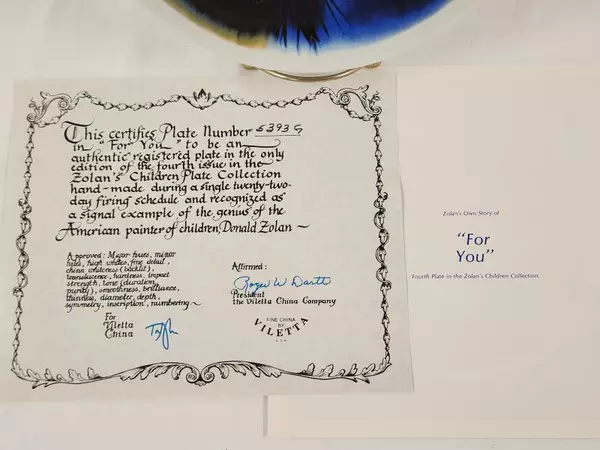 This certifies Plate Number 5393 G
in "For You" to be an
authentic registered plate in the only
edition of the fourth issue in the
Zolan's Children Plate Collection
hand-made during a single twenty-two-
day firing schedule and recognized as
a signal example of the genius of the
American painter of children, Donald Zolan
Approved: Major hues, minor
hues, high whites, fine detail,
china whiteness (backlit),
translucence, hardness, impact
strength, tone (duration,
purity), smoothness, brilliance,
thinness, diameter, depth,
symmetry, inscription, numbering
For
Viletta
China
Affirmed:
President
the Viletta China Company
FINE CHINA
BY
VILETTA
USA
Zolan's Own Story of
"For
You"
Fourth Plate in the Zolan's Children Collection.